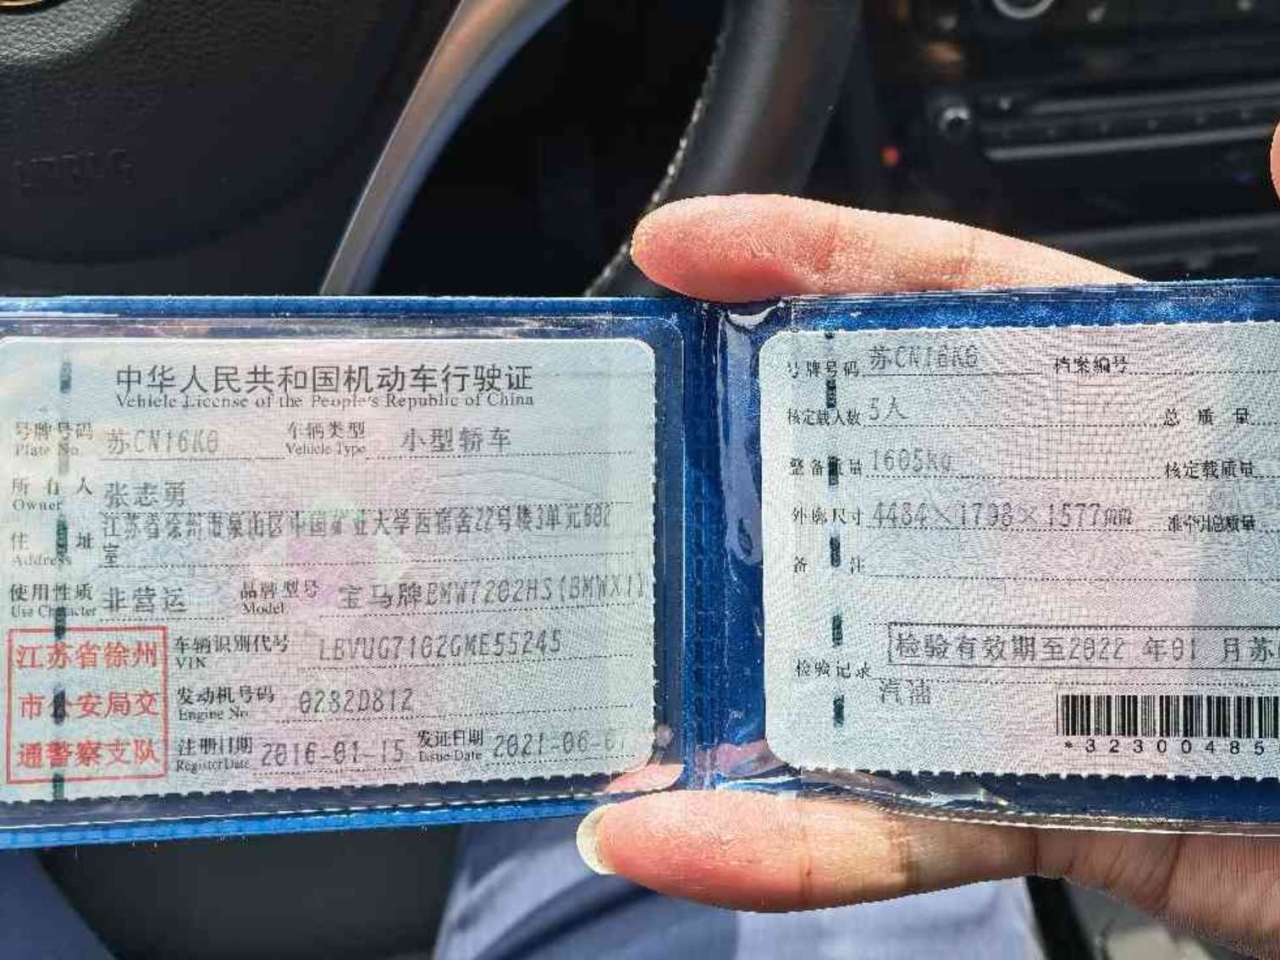 中华人民共和国机动车行驶证
Vehicle License of the People's Republic of China
号牌号码 苏CN16K6 车辆类型 小型轿车
Plate No. Vehicle Type
所有人 张志勇
Owner
江苏省徐州市泉山区中国矿业大学西宿舍22号楼3单元602
住址 室
Address
使用性质 非营运 品牌型号 宝马牌BMW7202HS(BMWX1)
Use Character Model
江苏省徐州
市公安局交
通警察支队
车辆识别代号 LBVUG7102GME55245
VIN
发动机号码 0282D812
Engine No.
注册日期 2016-01-15 发证日期 2021-06-0
Register Date Issue Date
号牌号码 苏CN16K6 档案编号
核定载人数 5人 总质量
整备质量 1605kg 核定载质量
外廓尺寸 4484×1798×1577mm 准牵引总质量
备注
检验有效期至2022年01月苏
检验记录
汽油
*323004857